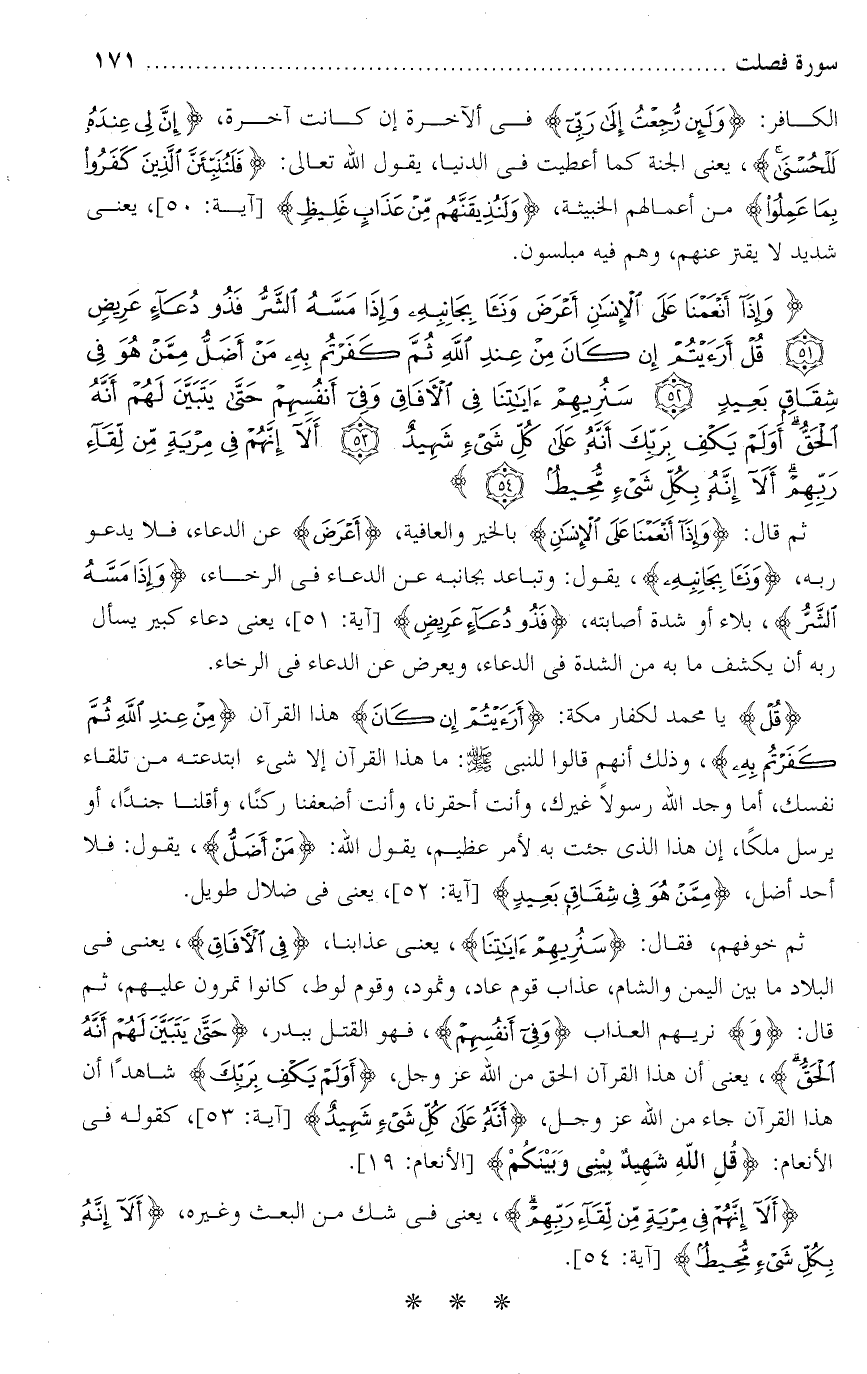 سورة فصلت ........................................................................ ١٧١
الكافر: ﴿وَلَئِن رُّجِعْتُ إِلَىٰ رَبِّىٓ﴾ فى ألآخرة إن كانت آخرة، ﴿إِنَّ لِى عِندَهُۥ
لَلْحُسْنَىٰ ۚ﴾، يعنى الجنة كما أعطيت فى الدنيا، يقول الله تعالى: ﴿فَلَنُنَبِّئَنَّ الَّذِينَ كَفَرُوا۟
بِمَا عَمِلُوا۟﴾ من أعمالهم الخبيثة، ﴿وَلَنُذِيقَنَّهُم مِّنْ عَذَابٍ غَلِيظٍ﴾ [آية: ٥٠]، يعنى
شديد لا يقتر عنهم، وهم فيه مبلسون.
﴿وَإِذَآ أَنْعَمْنَا عَلَى ٱلْإِنسَٰنِ أَعْرَضَ وَنَـَٔا بِجَانِبِهِۦ وَإِذَا مَسَّهُ ٱلشَّرُّ فَذُو دُعَآءٍ عَرِيضٍ
٥١ قُلْ أَرَءَيْتُمْ إِن كَانَ مِنْ عِندِ ٱللَّهِ ثُمَّ كَفَرْتُم بِهِۦ مَنْ أَضَلُّ مِمَّنْ هُوَ فِى
شِقَاقٍۭ بَعِيدٍ ٥٢ سَنُرِيهِمْ ءَايَٰتِنَا فِى ٱلْآفَاقِ وَفِىٓ أَنفُسِهِمْ حَتَّىٰ يَتَبَيَّنَ لَهُمْ أَنَّهُ
ٱلْحَقُّ ۗ أَوَلَمْ يَكْفِ بِرَبِّكَ أَنَّهُۥ عَلَىٰ كُلِّ شَىْءٍ شَهِيدٌ ٥٣ أَلَآ إِنَّهُمْ فِى مِرْيَةٍ مِّن لِّقَآءِ
رَبِّهِمْ ۗ أَلَآ إِنَّهُۥ بِكُلِّ شَىْءٍ مُّحِيطٌۢ ٥٤ ﴾
ثم قال: ﴿وَإِذَآ أَنْعَمْنَا عَلَى ٱلْإِنسَٰنِ﴾ بالخير والعافية، ﴿أَعْرَضَ﴾ عن الدعاء، فلا يدعو
ربه، ﴿وَنَـَٔا بِجَانِبِهِۦ﴾، يقول: وتباعد بجانبه عن الدعاء فى الرخاء، ﴿وَإِذَا مَسَّهُ
ٱلشَّرُّ﴾، بلاء أو شدة أصابته، ﴿فَذُو دُعَآءٍ عَرِيضٍ﴾ [آية: ٥١]، يعنى دعاء كبير يسأل
ربه أن يكشف ما به من الشدة فى الدعاء، ويعرض عن الدعاء فى الرخاء.
﴿قُلْ﴾ يا محمد لكفار مكة: ﴿أَرَءَيْتُمْ إِن كَانَ﴾ هذا القرآن ﴿مِنْ عِندِ ٱللَّهِ ثُمَّ
كَفَرْتُم بِهِۦ﴾، وذلك أنهم قالوا للنبى ﷺ: ما هذا القرآن إلا شىء ابتدعته من تلقاء
نفسك، أما وجد الله رسولاً غيرك، وأنت أحقرنا، وأنت أضعفنا ركنًا، وأقلنا جندًا، أو
يرسل ملكًا، إن هذا الذى جئت به لأمر عظيم، يقول الله: ﴿مَنْ أَضَلُّ﴾، يقول: فلا
أحد أضل، ﴿مِمَّنْ هُوَ فِى شِقَاقٍۭ بَعِيدٍ﴾ [آية: ٥٢]، يعنى فى ضلال طويل.
ثم خوفهم، فقال: ﴿سَنُرِيهِمْ ءَايَٰتِنَا﴾، يعنى عذابنا، ﴿فِى ٱلْآفَاقِ﴾، يعنى فى
البلاد ما بين اليمن والشام، عذاب قوم عاد، وثمود، وقوم لوط، كانوا تمرون عليهم، ثم
قال: ﴿وَ﴾ نريهم العذاب ﴿وَفِىٓ أَنفُسِهِمْ﴾، فهو القتل ببدر، ﴿حَتَّىٰ يَتَبَيَّنَ لَهُمْ أَنَّهُ
ٱلْحَقُّ ۗ﴾، يعنى أن هذا القرآن الحق من الله عز وجل، ﴿أَوَلَمْ يَكْفِ بِرَبِّكَ﴾ شاهدًا أن
هذا القرآن جاء من الله عز وجل، ﴿أَنَّهُۥ عَلَىٰ كُلِّ شَىْءٍ شَهِيدٌ﴾ [آية: ٥٣]، كقوله فى
الأنعام: ﴿قُلِ اللَّهِ شَهِيدٌ بِيْنِى وَبَيْنَكُمْ﴾ [الأنعام: ١٩].
﴿أَلَآ إِنَّهُمْ فِى مِرْيَةٍ مِّن لِّقَآءِ رَبِّهِمْ ۗ﴾، يعنى فى شك من البعث وغيره، ﴿أَلَآ إِنَّهُۥ
بِكُلِّ شَىْءٍ مُّحِيطٌۢ﴾ [آية: ٥٤].
* * *